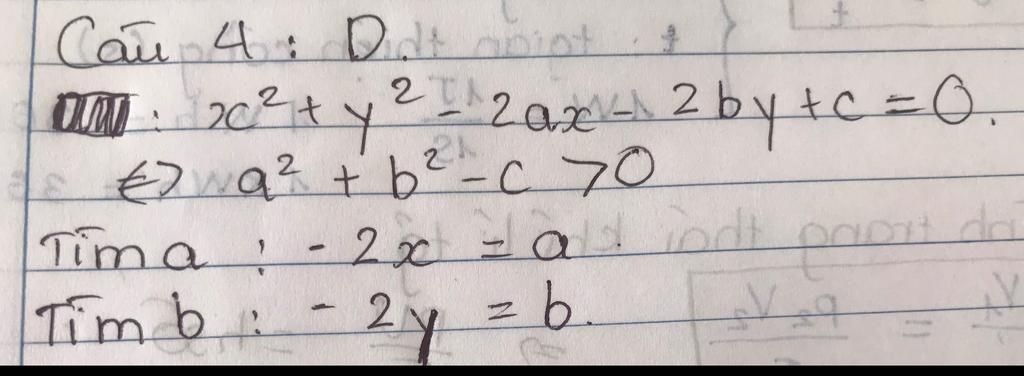 Câu 4: D.
: x² + y² - 2ax - 2by + c = 0.
<=> a² + b² - c > 0
Tìm a : - 2x = a.
Tìm b : - 2y = b.